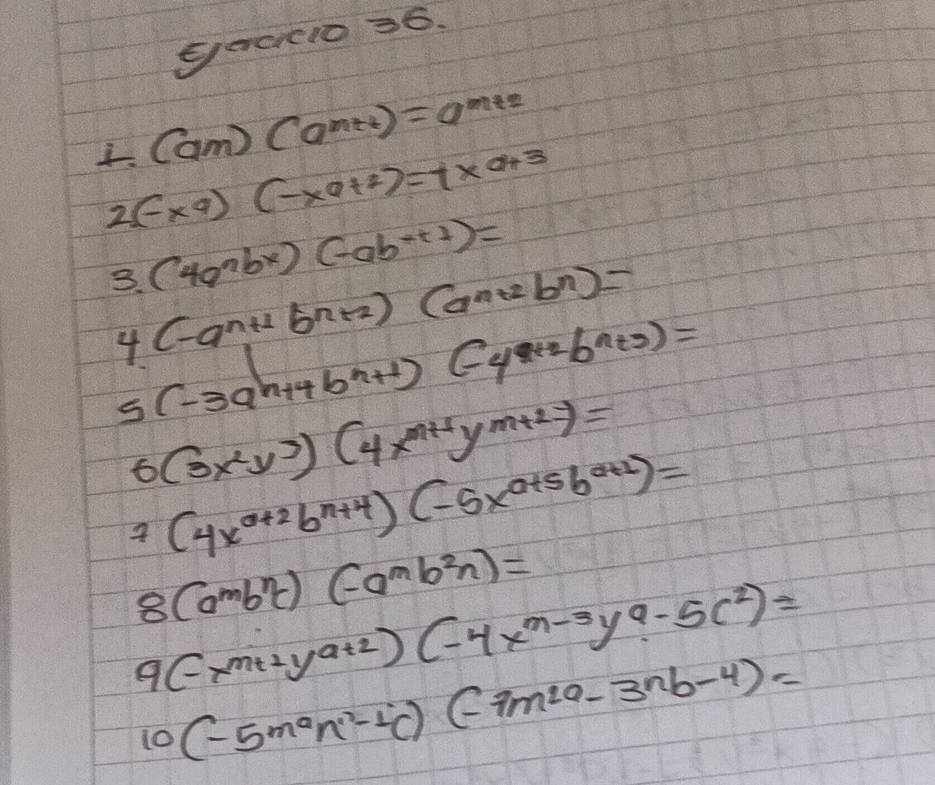 Ejercicio 36.
1. (am) (a^{m+1}) = a^{m+2}
2 (-x^a) (-x^{a+2}) = 1x^{a+3}
3. (4a^nb^x) (-ab^{x+1}) =
4. (-a^{n+1}b^{n+2}) (a^{n+2}b^n) =
5 (-3a^{n+4}b^{n+1}) (-4^{n+2}b^{n+3}) =
6 (3x^2y^3) (4x^{m+1}y^{m+2}) =
7 (4x^{a+2}b^{n+4}) (-5x^{a+5}b^{a+1}) =
8 (a^mb^nc) (-a^mb^2n) =
9 (-x^{m+1}y^{a+2}) (-4x^{m-3}y^a-5c^2) =
10 (-5m^an^{b-1}c) (-7m^2a-3nb-4) =